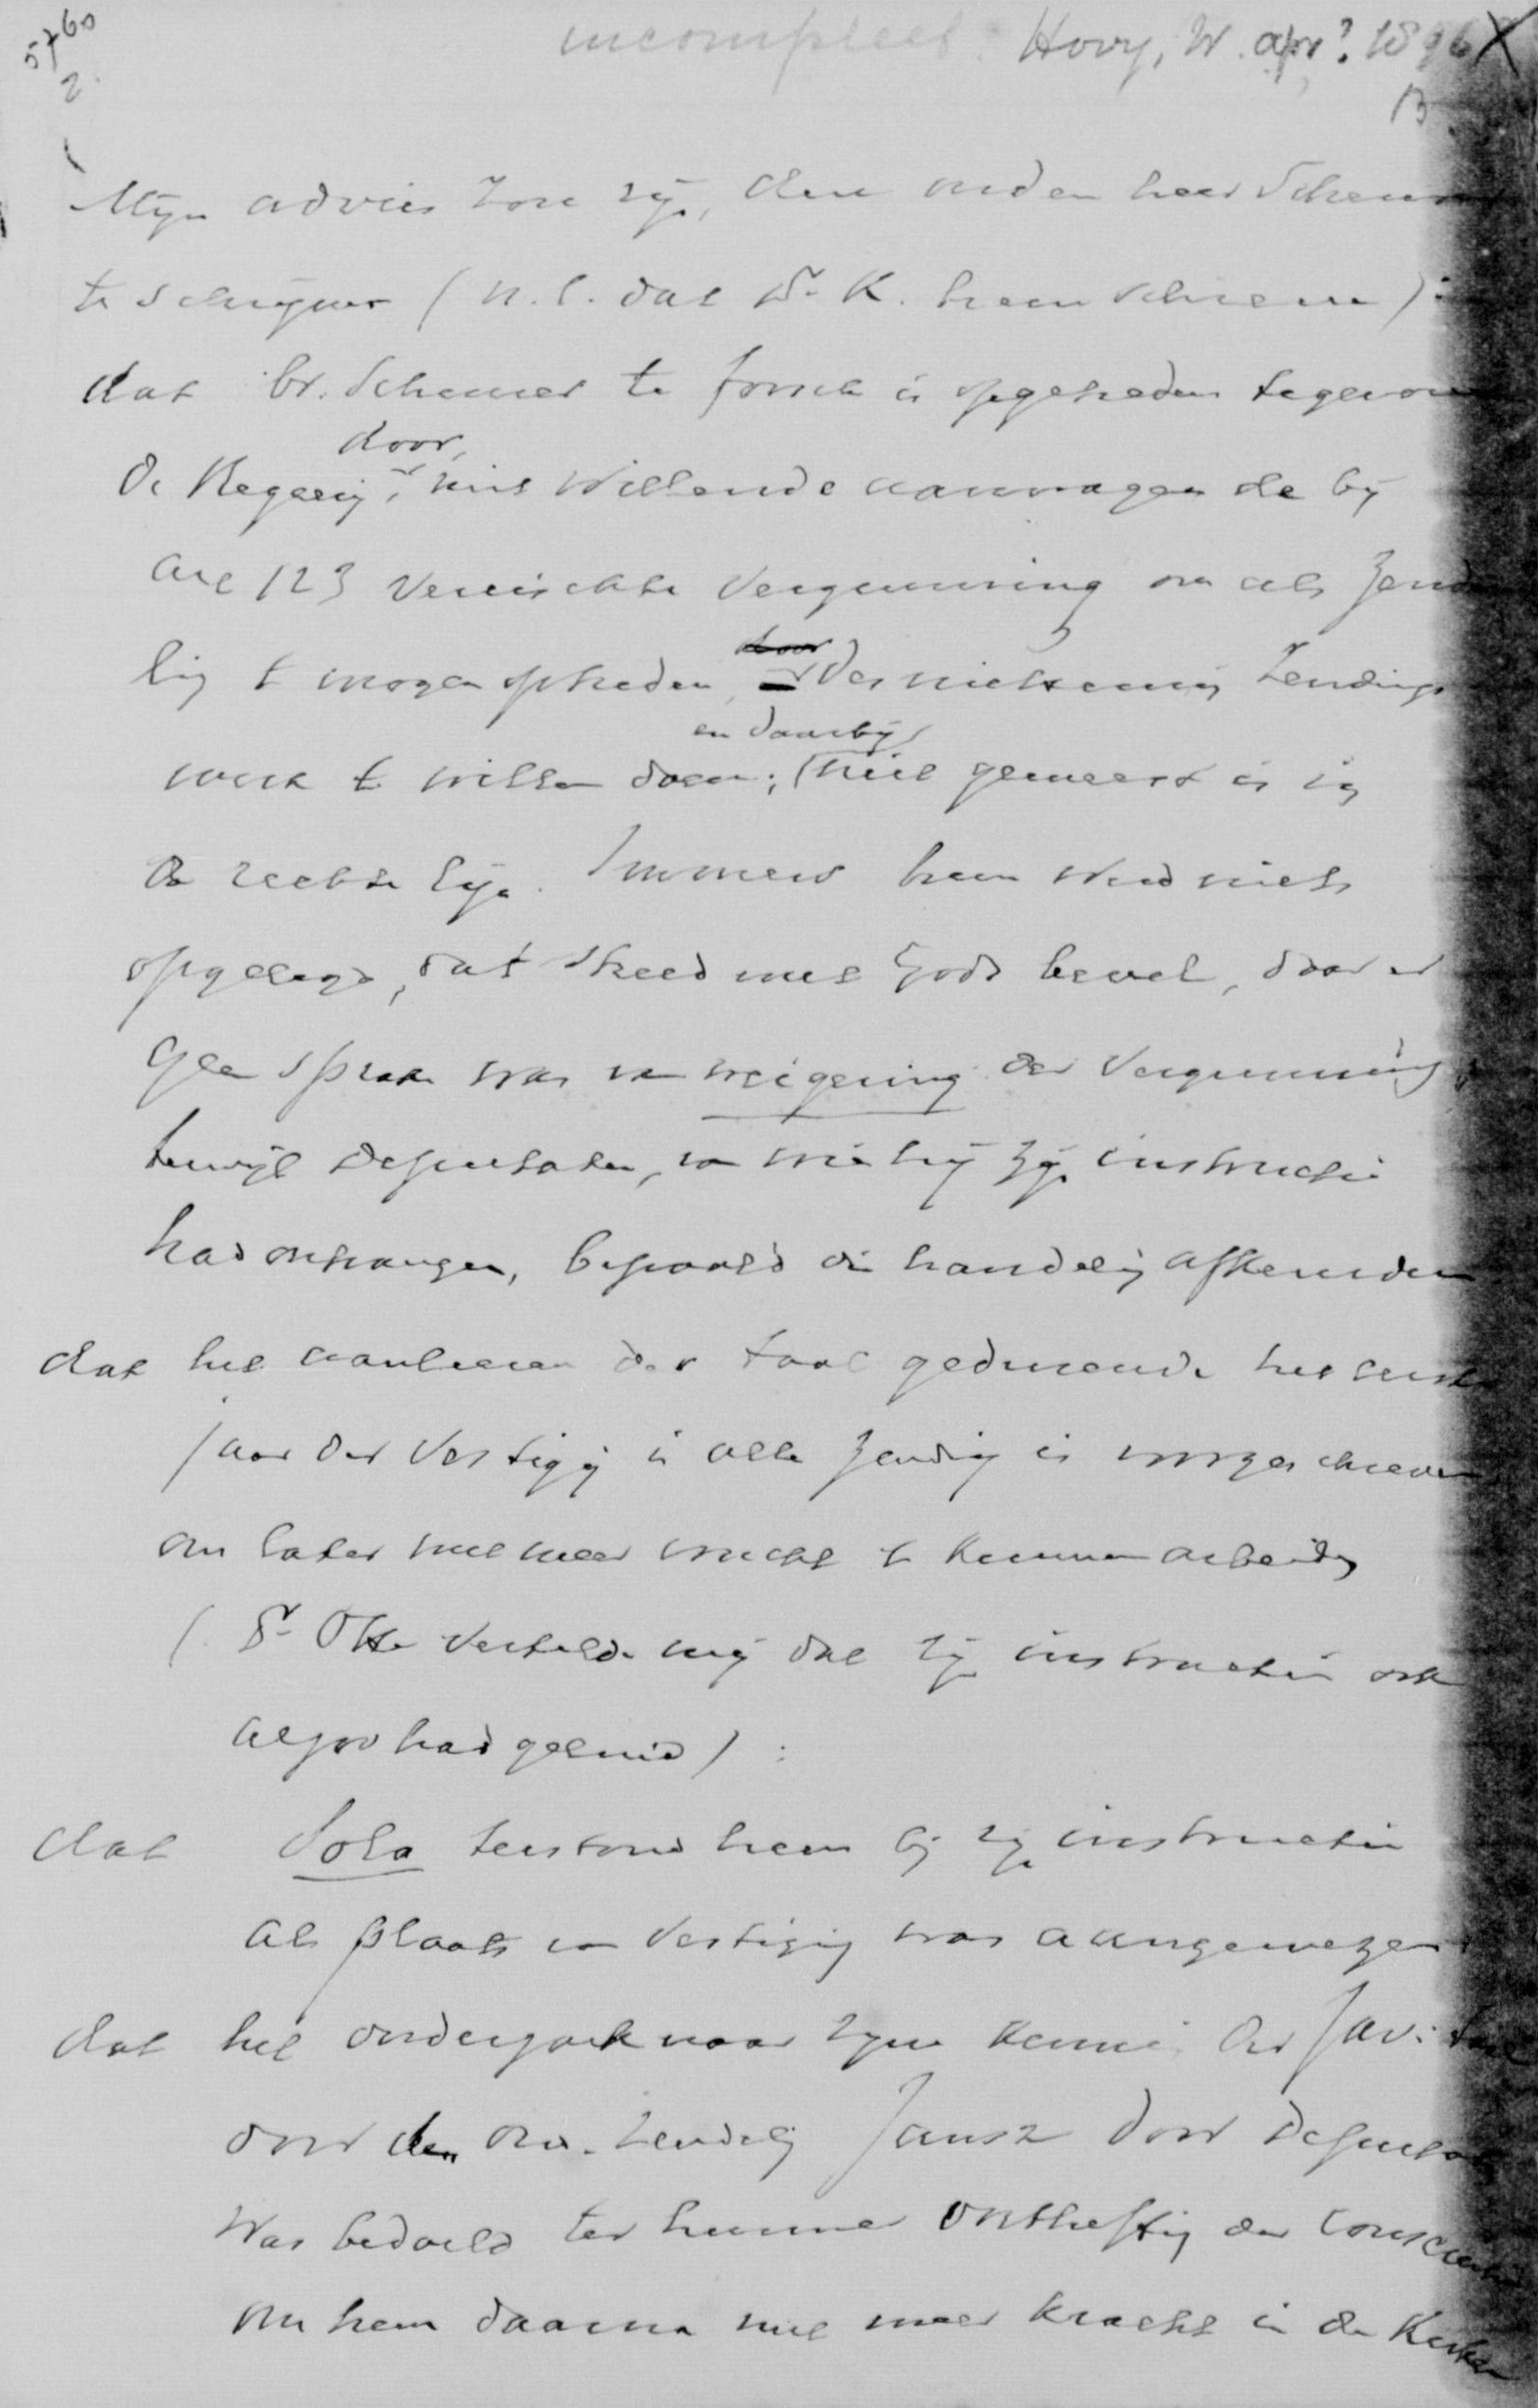 5760
2.
incompleet. Hovy, W. apr? 1896 X
13
Mijn advies zou zijn, den ouden heer Scheurer
te schrijven (n.l. dat Dr. K. hem schreve):
dat br. Scheurer te forsch is opgetreden tegenover
door,
de Regeering, niet willende aanvragen de bij
art 123 vereischte vergunning om als Zende-
ling te mogen optreden, door des niettemin Zendings
en daarbij
werk te willen doen; niet geweest is in
de rechte lijn. Immers hem werd niets
opgelegd, dat streed met Gods bevel, daar er
geen sprake was van weigering der vergunning,
terwijl Deputaten, van wie hij zijn instructie
had ontvangen, bepaald die handeling afkeurden
dat het aanleeren der taal gedurende het eerste
jaar der vestiging in alle Zending is voorgeschreven
om later met meer vrucht te kunnen arbeiden
(Ds Otte vertelde mij dat zijn instructie ook
alzoo had geluid):
dat Solo terstond hem bij zijn instructie
als plaats van vestiging was aangewezen
dat het onderzoek naar zijne kennis der Jav: taal
door den Zendeling Jansz door Deputaten
was bedoeld ter hunner ontheffing der conscientie
om hem daarna met meer kracht in de Kerken